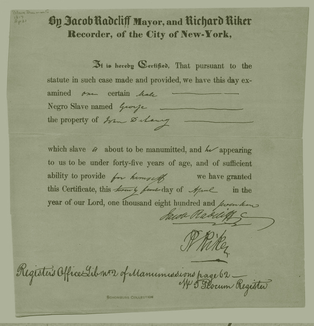 By Jacob Radcliff Mayor, and Richard Riker
Recorder, of the City of New-York,
It is hereby Certified, That pursuant to the
statute in such case made and provided, we have this day ex-
amined one certain male
Negro Slave named George
the property of
which slave is about to be manumitted, and he appearing
to us to be under forty-five years of age, and of sufficient
ability to provide for himself we have granted
this Certificate, this day of April in the
year of our Lord, one thousand eight hundred and
Jacob Radcliff
R. Riker
Register's Office Lib No 2 of Manumissions page 62
Register